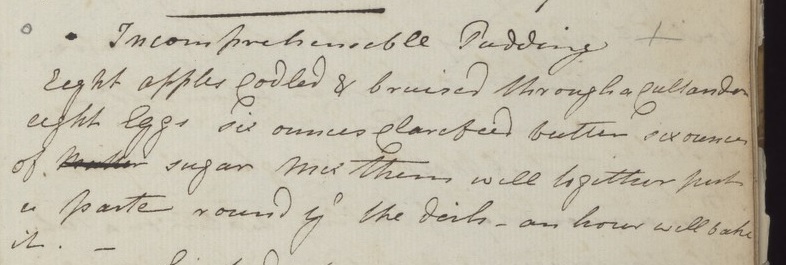 Incomprehensible Pudding +
Eight apples Codled & bruised through a Cullander
eight Eggs six ounces Clarefied butter six ounces
of sugar mix them well together put
a paste round ye the dish - an hour will bake
it. -